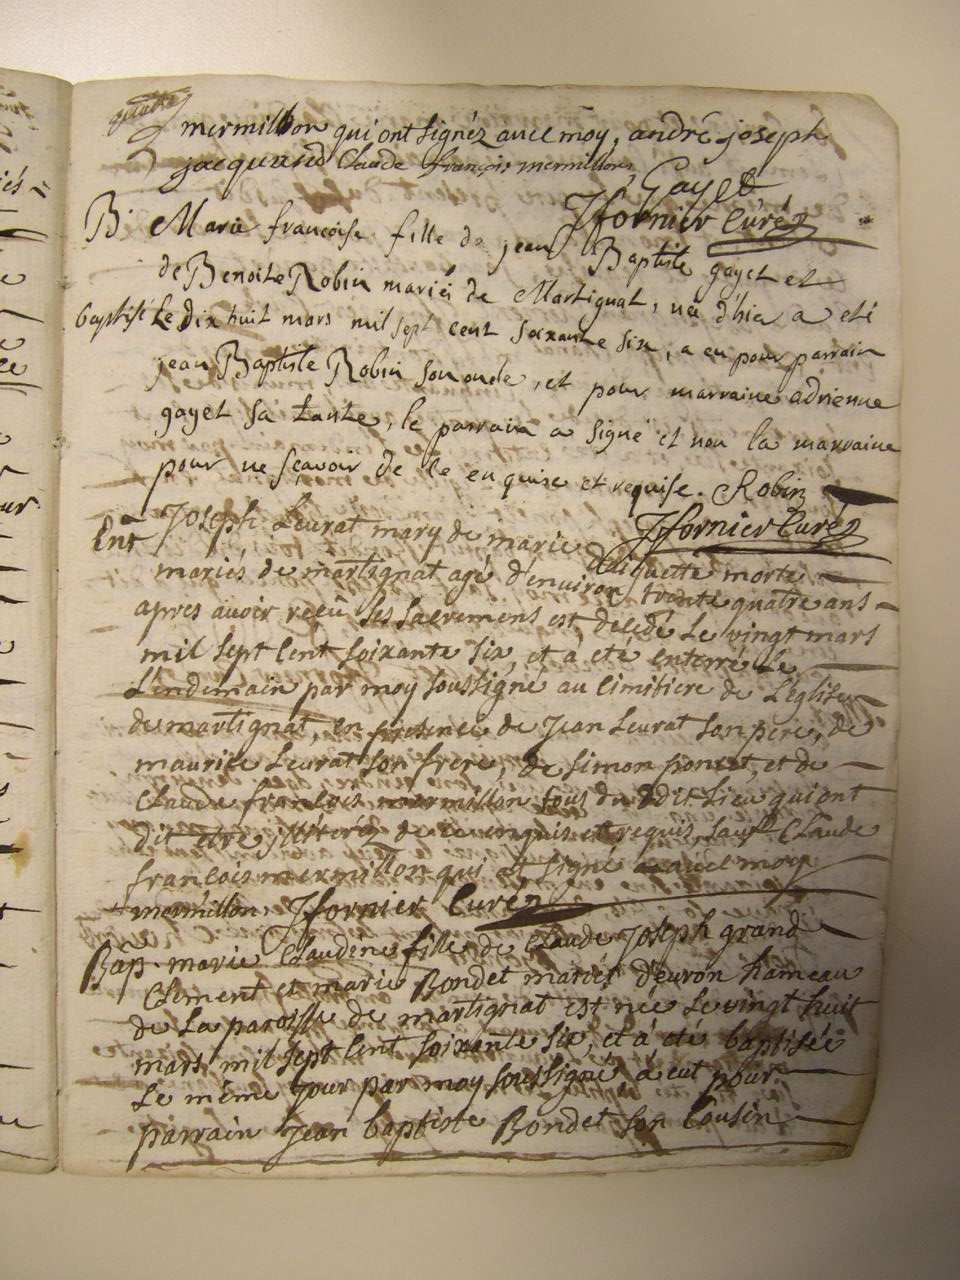 mermillon qui ont signéz avec moy, andré joseph
jacquand Claude françois mermillon
Gayet
JFornier Curéz
B. Marie francoise fille de jean Baptiste gayet et
de Benoite Robin mariéz de Martignat, née d'hier a eté
baptisé Le dix huit mars mil sept cent soixante six, a eu pour parrain
jean Baptiste Robin son oncle, et pour marraine adrienne
gayet sa tante, le parrain a signé et non la marraine
pour ne scavoir de ce enquise et requise. Robin
JFornier Curéz
Ent Joseph Levrat mary de marie
mariés de martignat agé d'environ trente quatre ans
apres avoir réçû ses sacremens est decedé Le vingt mars
mil sept cent soixante six, et à eté enterré Le
Lendemain par moy soussigné au cimitiere de L'eglise
de martignat, en presence de Jean Levrat son pere, de
maurice Levrat son frere, de simon poncet, et de
Claude francois mermillon tous du dit Lieu qui ont
dit etre illiteréz de ce enquis et requis, sauf Claude
francois mermillon qui a signé avec moy
mermillon, JFornier Curéz
Bap. marie Claudine fille de Claude Joseph grand
Clement et marie Bondet mariés d'evron hameau
de La paroisse de martignat est née Le vingt huit
mars mil sept cent soixante six, et à eté baptisée
Le même Jour par moy soussigné, à eut pour
parrain Jean baptiste Bondet son Cousin